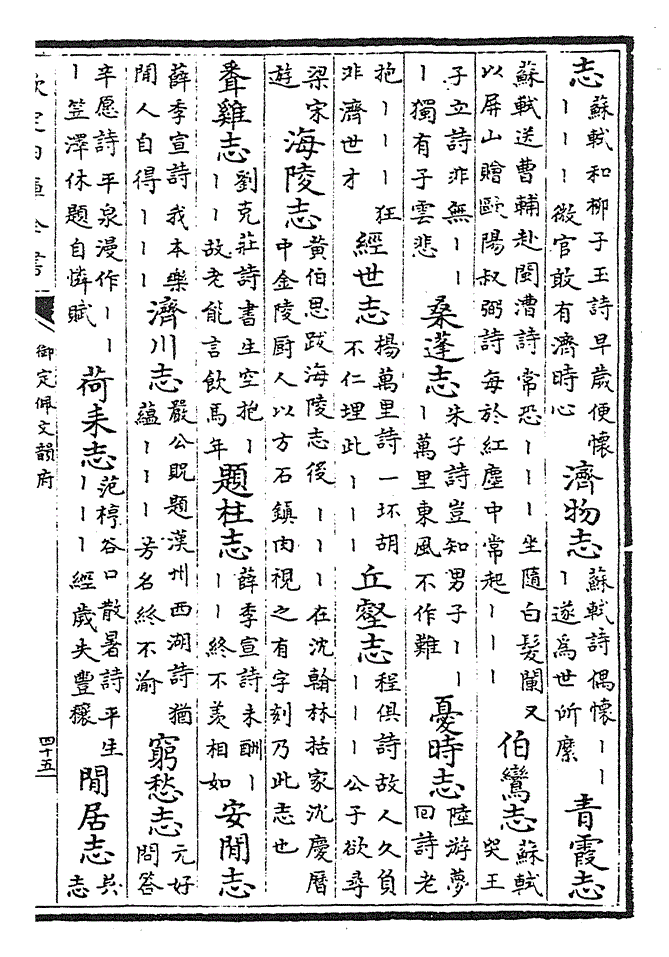 志 蘇軾和柳子玉詩早歲便懷丨丨丨微官敢有濟時心 濟物志 蘇軾詩偶懷丨丨丨遂爲世所縻 青霞志
蘇軾送曹輔赴閩漕詩常恐丨丨丨坐隨白髮闌又以屏山贈歐陽叔弼詩每於紅塵中常起丨丨丨 伯鸞志 蘇軾哭王
子立詩非無丨丨丨獨有子雲悲 桑蓬志 朱子詩豈知男子丨丨丨萬里東風不作難 憂時志 陸游夢回詩老
抱丨丨丨狂非濟世才 經世志 楊萬里詩一坏胡不仁埋此丨丨丨 丘壑志 程俱詩故人久負丨丨丨公子欲尋
梁宋遊 海陵志 黃伯思跋海陵志後丨丨丨在沈翰林括家沈慶曆中金陵厨人以方石鎮肉視之有字刻乃此志也
雞志 劉克莊詩書生空抱丨丨丨故老能言飲馬年 題柱志 薛季宣詩未酬丨丨丨終不羨相如 安閒志
薛季宣詩我本樂閒人自得丨丨丨 濟川志 嚴公貺題漢州西湖詩猶蘊丨丨丨芳名終不渝 窮愁志 元好問答
辛愿詩平泉漫作丨丨丨笠澤休題自憐賦 荷耒志 范梈谷口散暑詩平生丨丨丨經歲失豐穰 閒居志 吳志
欽定四庫全書 御定佩文韻府 四十五